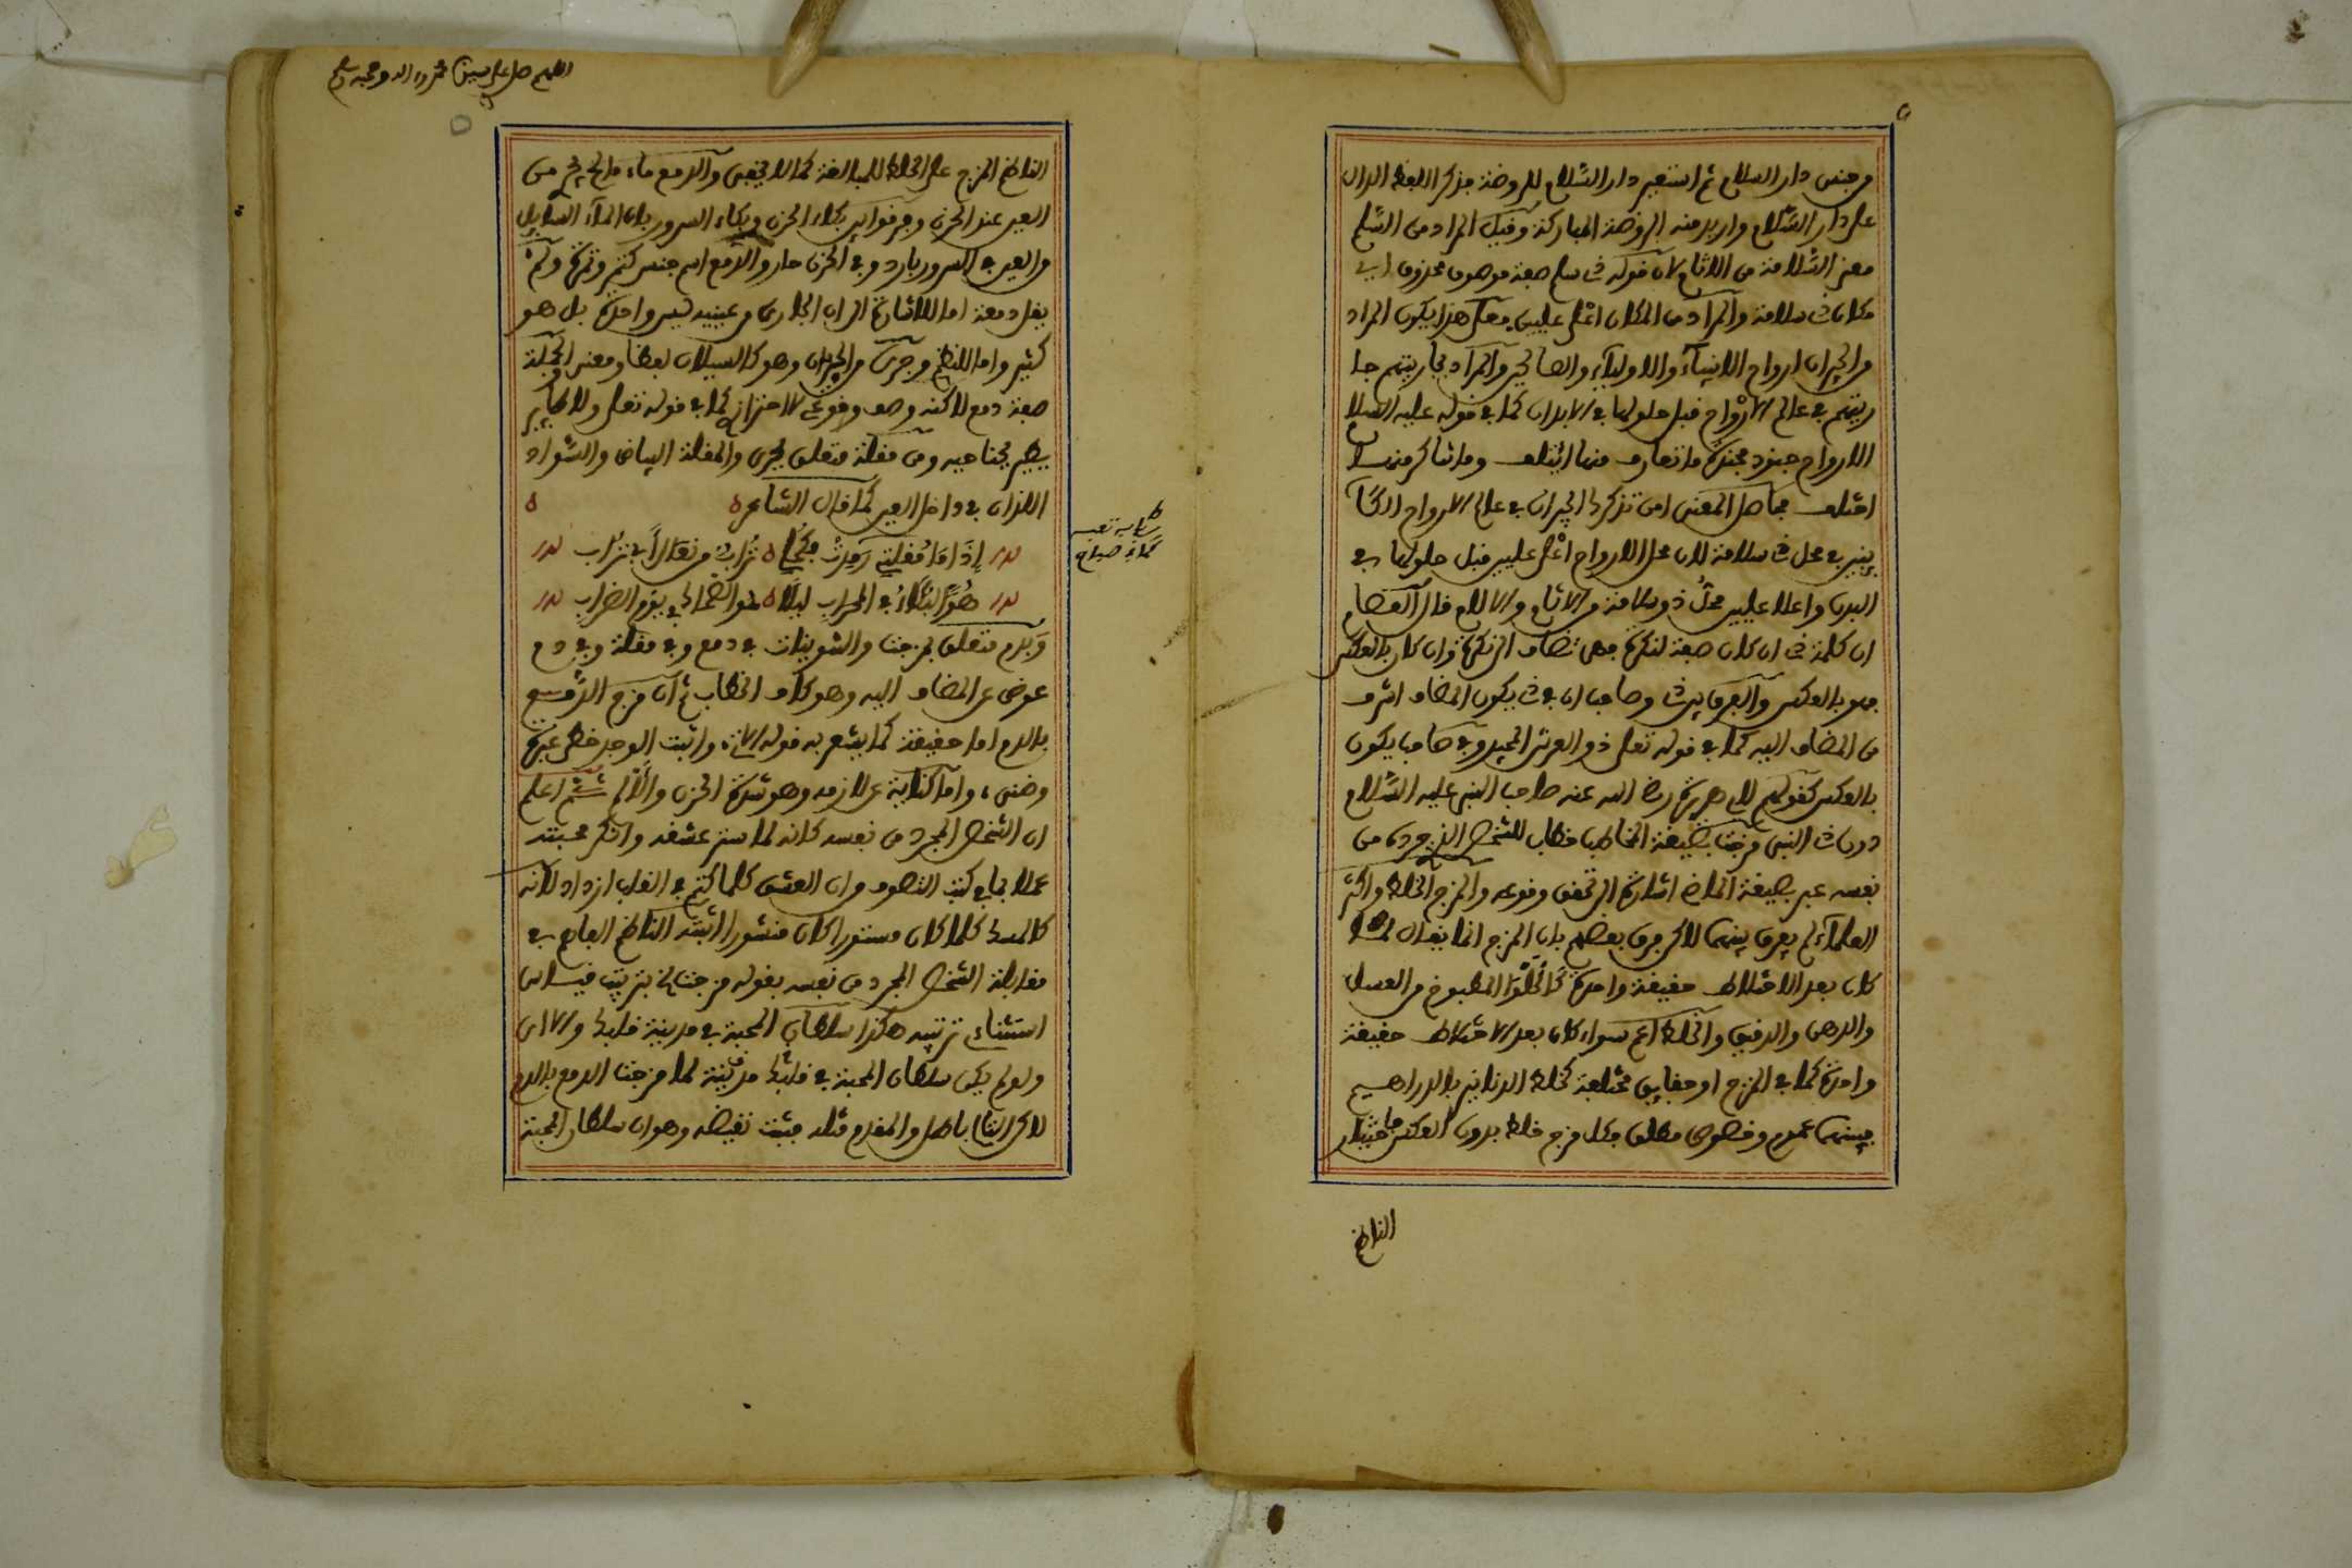 من جنس دار السلام ثم استعير دار السّلام للروضة بذكر اللفظ الدال
على دار السّلام واريد منه الروضة المباركة وقيل المراد من السّلم
معنى السّلامة من الاثام لان قوله ذي سلم صفة موصوف محذوف اي
مكان ذي سلامة والمراد من المكان اعلى عليين فعلى هذا يكون المراد
من الجيران ارواح الانبياء والاولياء والصالحين والمراد بجاريتهم جا
ريتهم في عالم الارواح قبل حلولها في الابدان كما في قوله عليه السلام
الارواح جنود مجندة ما تعارف منها ائتلف وما تناكر منها
اختلف فحاصل المعنى امن تذكر الجيران في عالم الارواح الكا
ينين في محل ذي سلامة لان محل الارواح اعلى عليين قبل حلولها في
البدن واعلا عليين محلّ ذو سلامة من الاثام والالام قال العصام
ان كلمة ذي ان كان صفة لنكرة فهي تضاف الى نكرة وان كان بالعكس
فهو بالعكس والفرق بين ذي وصاحب ان في ذي يكون المضاف اشرف
من المضاف اليه كما في قوله تعلى ذو العرش المجيد وفي صاحب يكون
بالعكس كقولهم لابي هريرة رضي الله عنه صاحب النبي عليه السّلام
دون ذي النبي مزجت بصيغة المخاطب خطاب للشخص الذي جرده من
نفسه عبر بصيغة الماضي اشارة الى تحقق وقوعه والمزج الخلط واكثر
العلماء لم يفرق بينهما لاكن فرق بعضهم بان المزج انما يقال لما
كان بعد الاختلاط حقيقة واحدة كالحلوا المطبوخ من العسل
والدهن والدقيق والخلط اعم سواء كان بعد الاختلاط حقيقة
واحدة كما في المزج او حقايق مختلفة كخلط الدنانير بالدراهيم
فبينهما عموم وخصوص مطلق فكل مزج خلط بدون العكس فاختيار
الناظم
اللهم صل على سيدنا محمد واله وصحبه وسلم
الناظم المزج على الخلط للمبالغة كما لا يخفى والدمع ماء مالح يخرج من
العين عند الحزن وفرقوا بين بكاء الحزن وبكاء السرور بان الماء السايل
من العين في السرور بارد وفي الحزن حار والدمع اسم جنس كتمر وتمرة ولم
يقل دمعة اما للاشارة الى ان الجاري من عينيه ليس واحدة بل هو
كثير واما للنظم وجرى من الجريان وهو كالسيلان لفظا ومعنى والجملة
صفة دمع لاكنه وصف وقوعي لا احترازي كما في قوله تعلى ولا طاير
يطير بجناحيه ومن مقلة متعلق بجرى والمقلة البياض والسّواد
اللذان في داخل العين كما قال الشاعر
إذا ما مقلتي رمدت فكحلي تراب من نعال أبي تراب
هو البكّاء في المحراب ليلا هو الضحاك في يوم الضراب
وبدم متعلق بمزجت والتنوينات في دمع وفي مقلة وفي دم
عوض عن المضاف اليه وهو كاف الخطاب ثم ان مزج الدمع
بالدم اما حقيقة كما يشعر به قوله الاتي واثبت الوجد خطي عبرة
وضنى واما كناية عن لازمه وهو شدة الحزن والألم ثم اعلم
ان الشخص المجرد من نفسه كانه لما ستر عشقه وانكر محبته
عملا بما في كتب التصوف من ان العشق كلما كتم في القلب ازداد لانه
كالمسك كلما كان مستورا كان منشورا اثبته الناظم الفاهم في
مقابلة الشخص المجرد من نفسه بقوله مزجت الخ بترتيب قياس
استثناءي ترتيبه هكذا سلطان المحبة في مدينة قلبك والان
ولو لم يكن سلطان المحبة في قلبك مدينة لما مزجت الدمع بالدم
لاكن التالي باطل والمقدم مثله فثبت نقيضه وهو ان سلطان المحبة